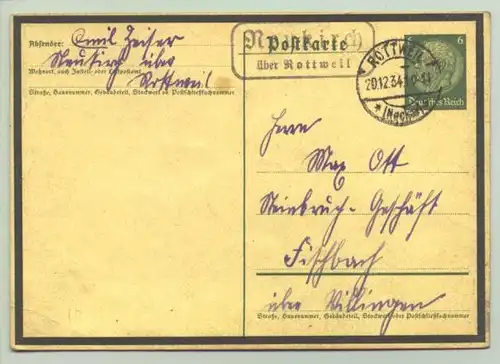 Absender: Emil Zeiser
Neukirch über
Wohnort, auch Zustell- oder Leitpostamt
Rottweil
Straße, Hausnummer, Gebäudeteil, Stockwerk od. Postschließfachnummer
Neukirch
Postkarte
über Rottweil
ROTTWEIL
20.12.34
6
Deutsches Reich
Herrn
Max Ott
Steinbruch-Geschäft
Fischbach
über Villingen
Straße, Hausnummer, Gebäudeteil, Stockwerk oder Postschließfachnummer